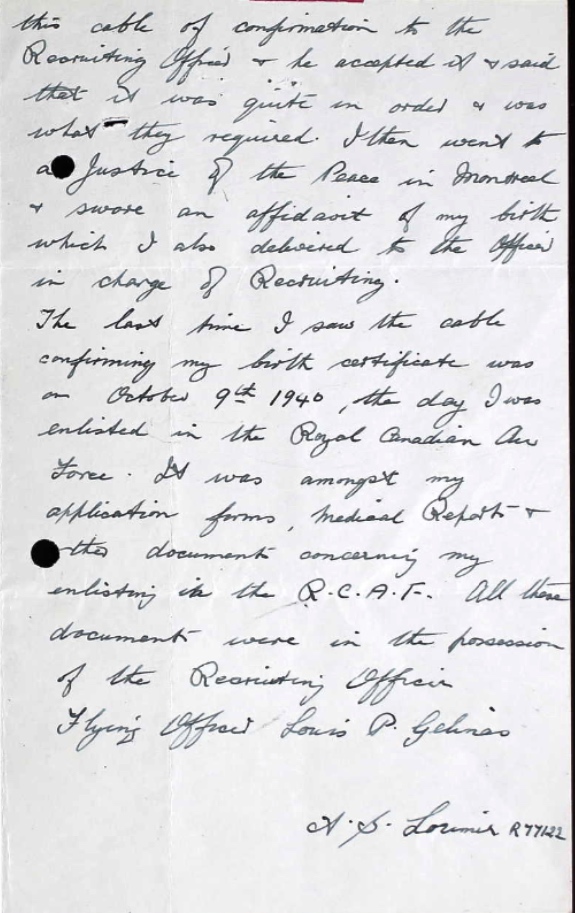 this cable of confirmation to the
Recruiting Officer & he accepted it & said
that it was quite in order & was
what they required. I then went to
a Justice of the Peace in Montreal
& swore an affidavit of my birth
which I also delivered to the Officer
in charge of Recruiting.
The last time I saw the cable
confirming my birth certificate was
on October 9th 1940, the day I was
enlisted in the Royal Canadian Air
Force. It was amongst my
application forms, Medical Reports &
other documents concerning my
enlisting in the R.C.A.F. All these
documents were in the possession
of the Recruiting Officer
Flying Officer Louis P. Gelinas
A. S. Lorimer R77122